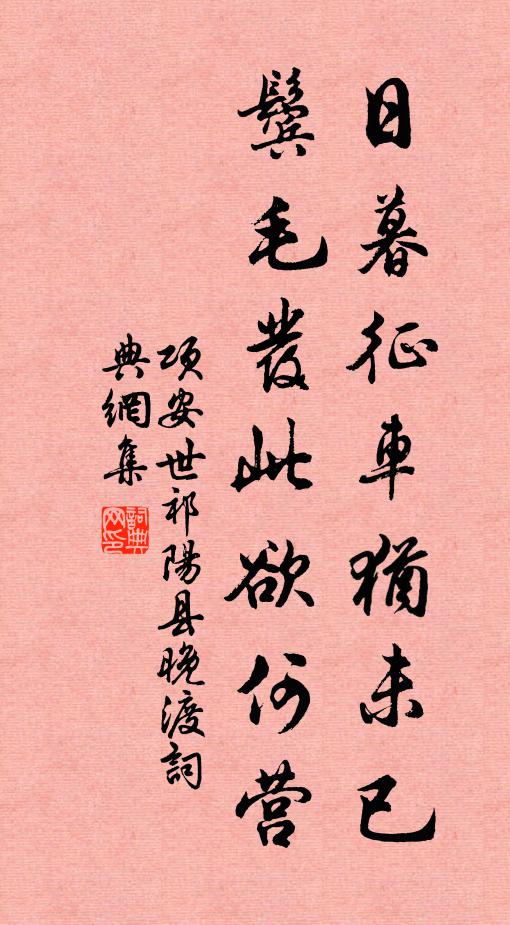 日暮征車猶未已
鬓毛發此欲何营
项安世祁陽县晚渡詞
典網集
詞典网印